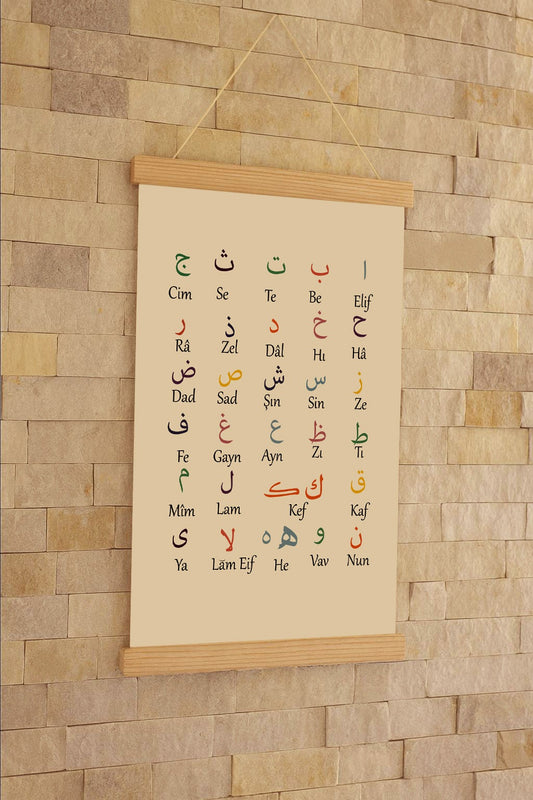 ا ب ت ث ج
Cim Se Te Be Elif
ح خ د ذ ر
Râ Zel Dâl Hı Hâ
ز س ش ص ض
Dad Sad Şın Sin Ze
ط ظ ع غ ف
Fe Gayn Ayn Zı Tı
ق ك ک ل م
Mîm Lam Kef Kaf
ن و ه ه لا ى
Ya Lăm Eif He Vav Nun